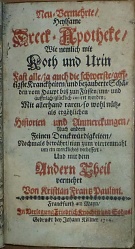 Neu-Vermehrte,
Heylsame
Dreck-Apotheke,
Wie nemlich mit
Koth und Urin
Fast alle, ja auch die schwerste, gifftigste
Kranckheiten, und bezauberte Schäden
vom Haupt biß zum Füssen, inn- und
äusserlich, glücklich curiret worden;
Mit allerhand raren, so wohl nütz-
als ergötzlichen
Historien und Anmerckungen,
Auch andern
Feinen Denckwürdigkeiten,
Nochmals bewährt, nun zum vierdtenmahl
um ein merckliches verbessert,
Und mit dem
Andern Theil
vermehret
Von Kristian Frantz Paullini.
Franckfurt am Mayn,
In Verlegung Friedrich Knochen und Sohns
Gedruckt bey Johann Köllner